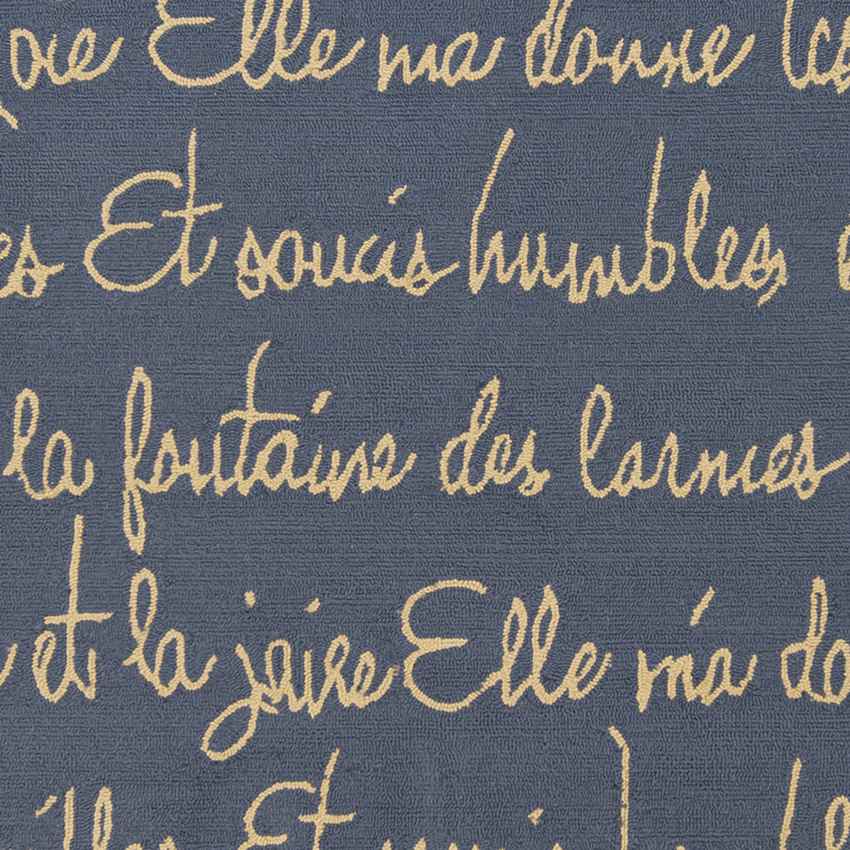 Elle ma donne les
es Et soucis humbles,
la fontaine des larmes
et la joire Elle m'a do